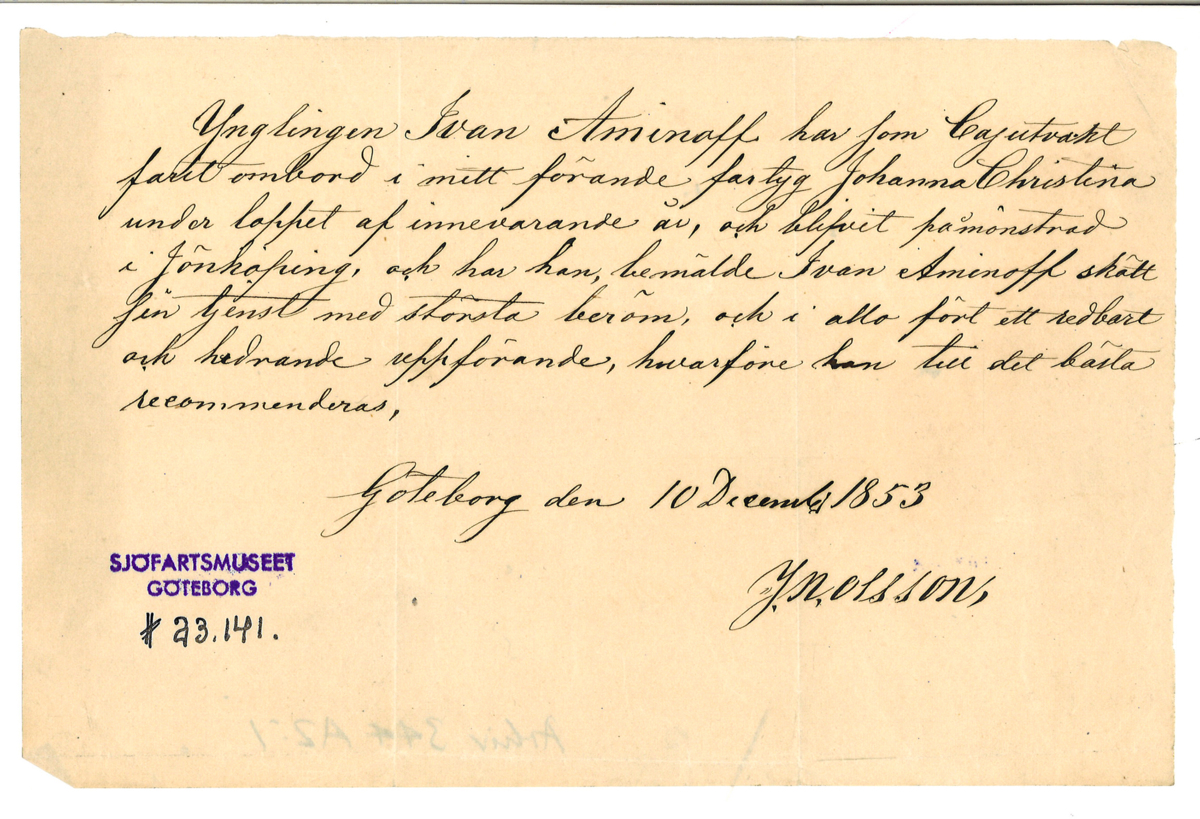 Ynglingen Ivan Aminoff har som Cajutvakt
farit ombord i mitt förande fartyg Johanna Christina
under loppet af innevarande år, och blifvit påmönstrad
i Jönköping, och har han, bemälde Ivan Aminoff skött
sin tjenst med största beröm, och i allo fört ett redbart
och hedrande uppförande, hwarföre han till det bästa
recommenderas,
Göteborg den 10 December 1853
J.N. Olsson,
SJÖFARTSMUSEET
GÖTEBORG
# 23.141.
Arkiv 344 A2-1